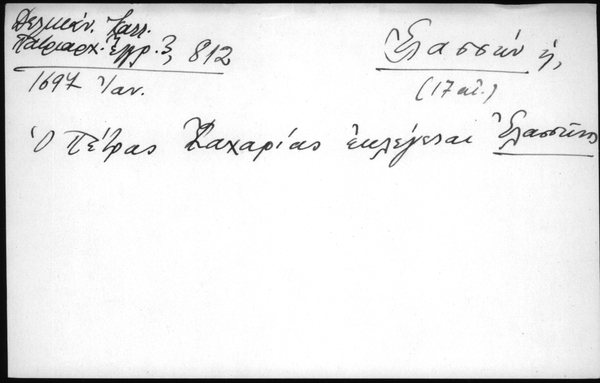 Δελικάν. Καλλ.
Πατριαρχ. Ἔγγρ. 3, 812
1697 Ἰαν.
Ἐλασσών ἡ,
(17 αἰ.)
Ὁ Πέτρας Ζαχαρίας ἐκλέγεται Ἐλασσῶνος